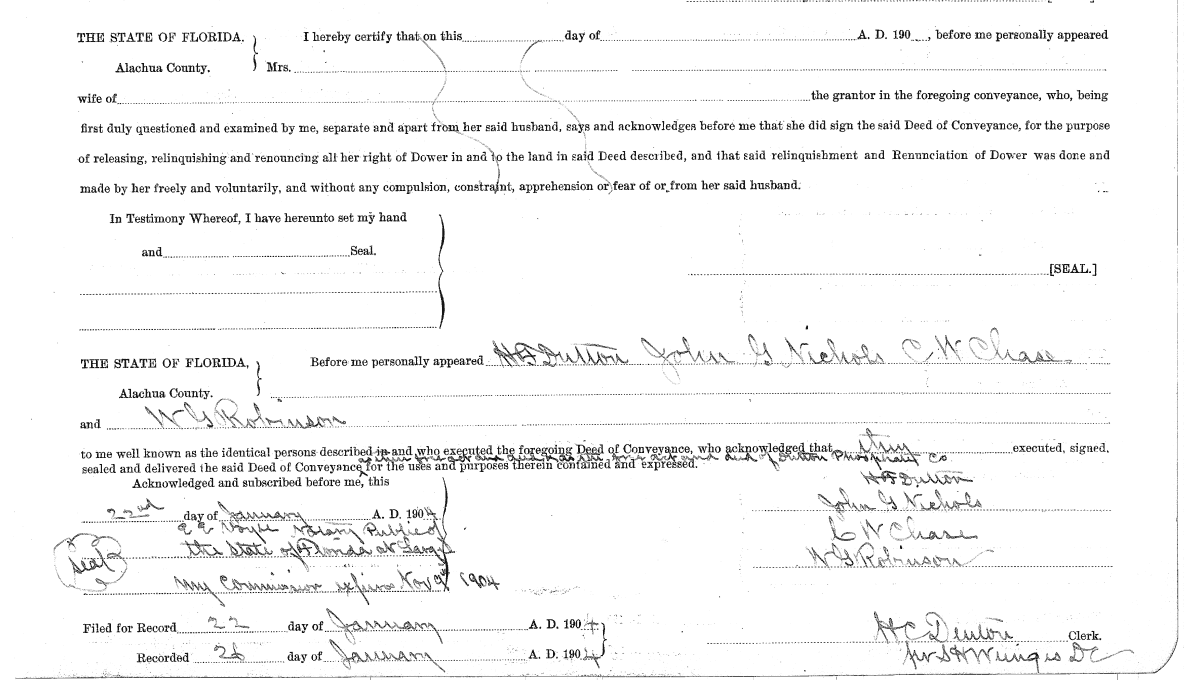 THE STATE OF FLORIDA, I hereby certify that on this day of A. D. 190 , before me personally appeared
Alachua County. Mrs.
wife of the grantor in the foregoing conveyance, who, being
first duly questioned and examined by me, separate and apart from her said husband, says and acknowledges before me that she did sign the said Deed of Conveyance, for the purpose
of releasing, relinquishing and renouncing all her right of Dower in and to the land in said Deed described, and that said relinquishment and Renunciation of Dower was done and
made by her freely and voluntarily, and without any compulsion, constraint, apprehension or fear of or from her said husband.
In Testimony Whereof, I have hereunto set my hand
and Seal.
[SEAL.]
THE STATE OF FLORIDA, Before me personally appeared H F Dutton John G Nichols C W Chase
Alachua County.
and W G Robinson
to me well known as the identical persons described in and who executed the foregoing Deed of Conveyance, who acknowledged that they executed, signed,
as their own act and deed and as the act and deed of Dutton Phosphate Co
sealed and delivered the said Deed of Conveyance for the uses and purposes therein contained and expressed.
Acknowledged and subscribed before me, this H F Dutton
22nd day of January A. D. 1904 John G Nichols
E E Voyle Notary Public of C W Chase
Seal the State of Florida at Large W G Robinson
My Commission expires Nov 9th 1904
Filed for Record 22 day of January A. D. 1904 H C Denton Clerk.
Recorded 26 day of January A. D. 1904 D C